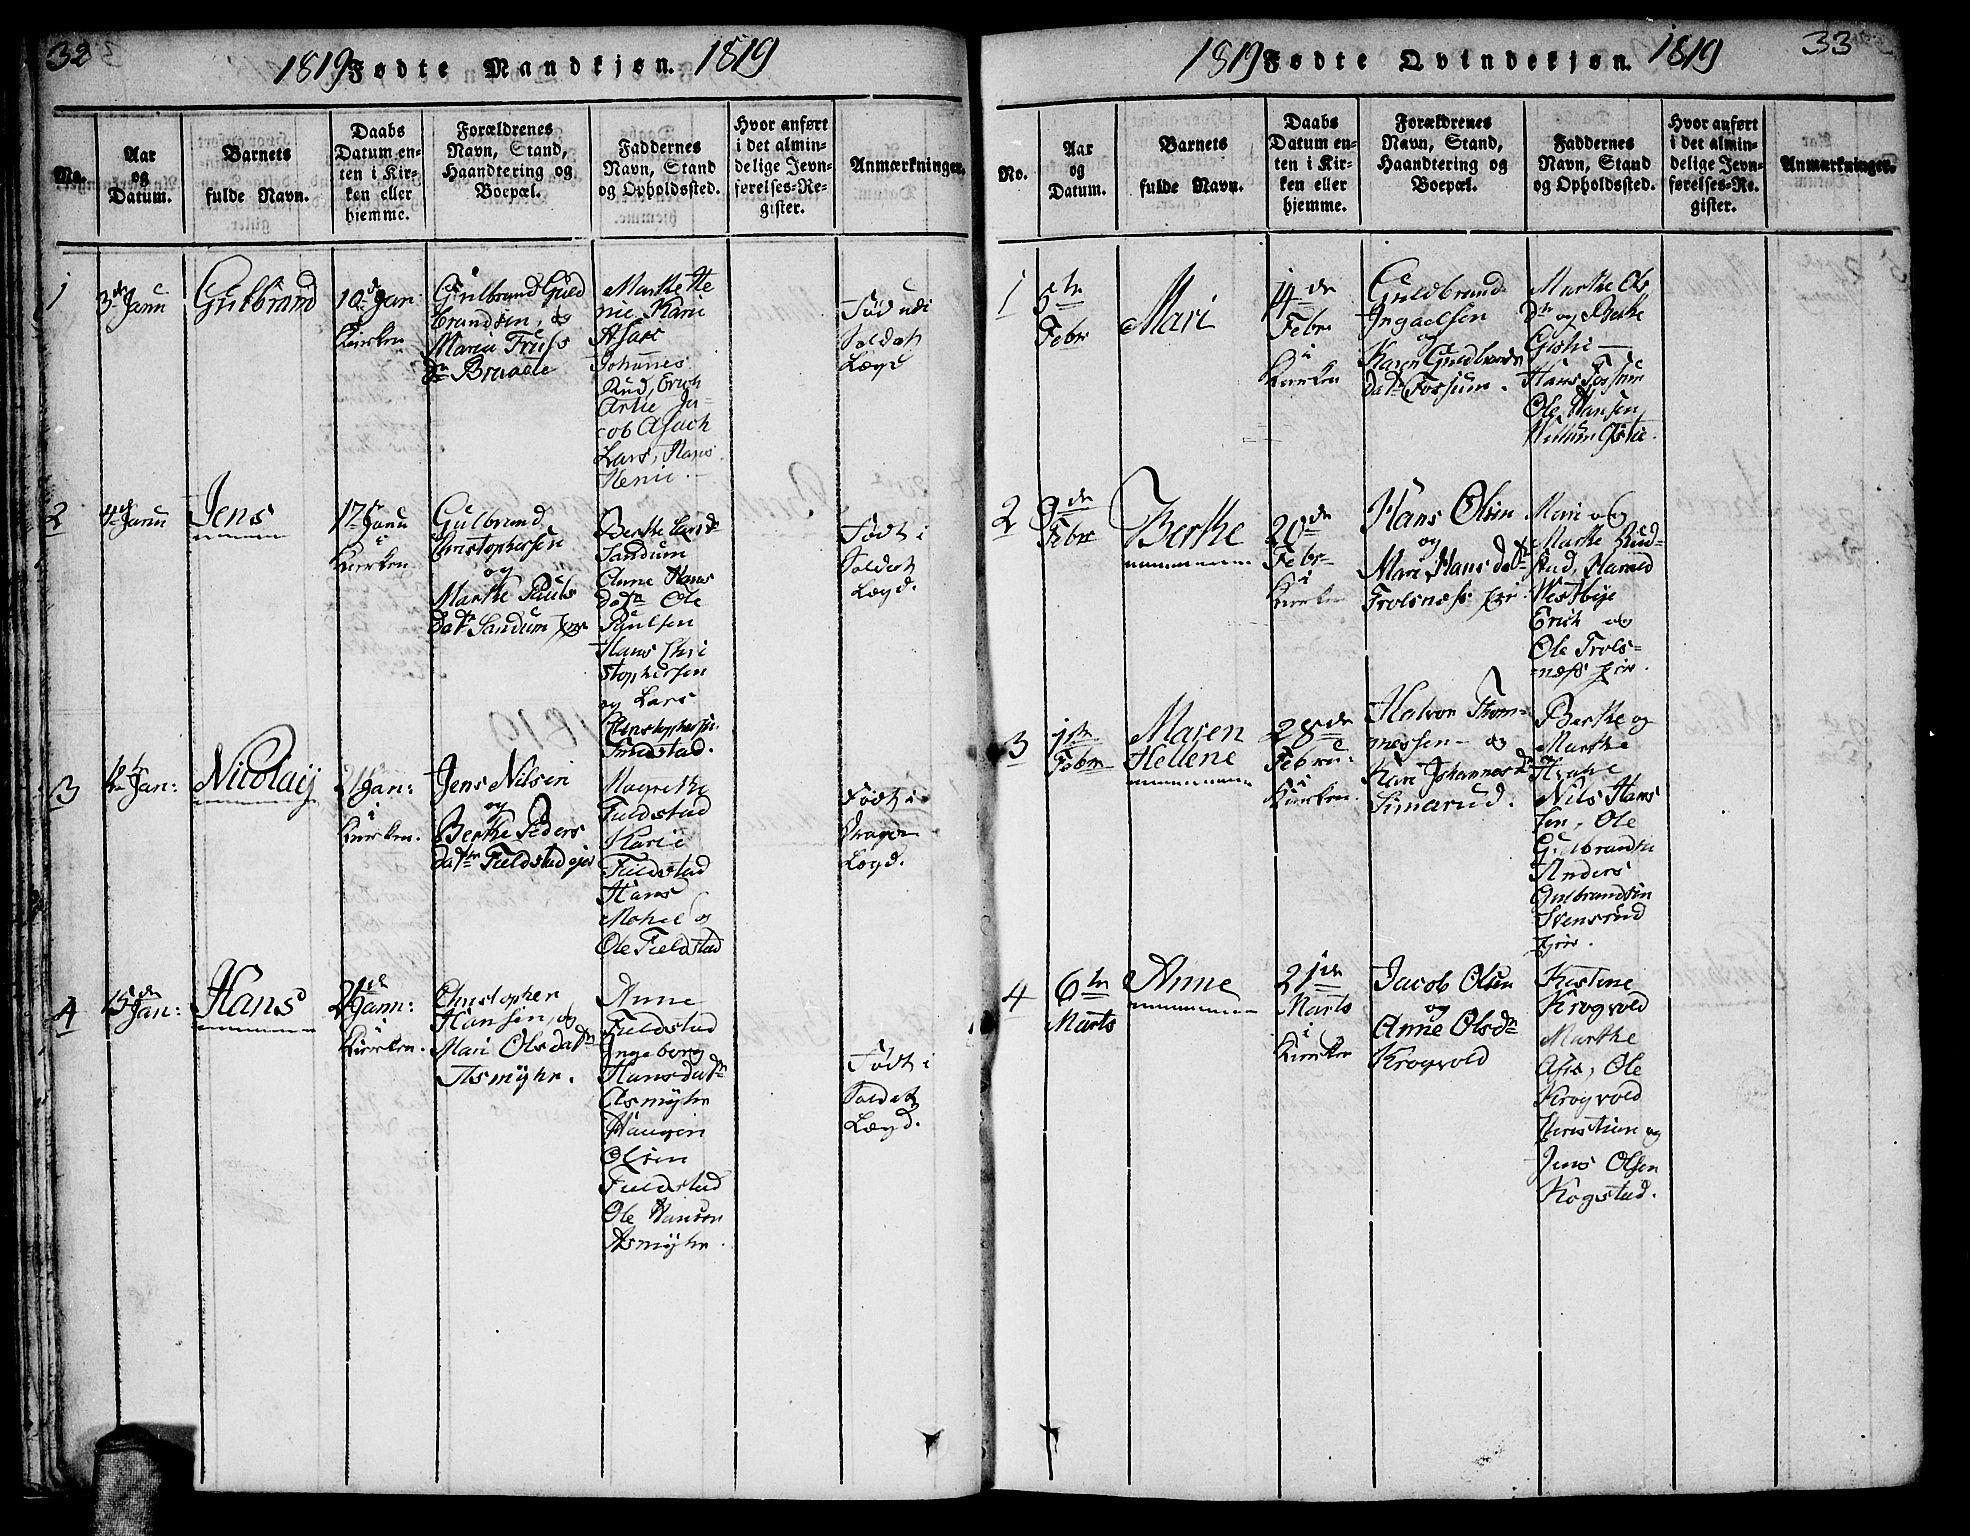 32
1819 Fødte Mandkjøn. 1819
No.
Aar
og
Datum.
Barnets
fulde Navn.
Daabs
Datum en-
ten i Kir-
ken eller
hjemme.
Forældrenes
Navn, Stand,
Haandtering og
Boepæl.
Faddernes
Navn, Stand
og Opholdssted.
Hvor anført
i det almin-
delige Jevn-
førelses-Re-
gister.
Anmærkninger.
1
3 Janu
Gulbrand
10 Jan:
Kierken
Gulbrand Guld
brandsen, og
Maria
Braade
Marthe He
nie Kari
Asak
Johannes
Rud, Erich
Ja-
cob Asach
Lars, Hans
Henie.
Fød udi
Soldat
Lægd
2
4 Janu
Jens
17 Janu
i
Kierken
Gulbrand
Christophersen
og
Marthe Pauls
dat Sandum
Berthe
Sandum
Anne Hans
dat Ole
Paulsen
Hans Chri
stophersen
og Lars
Christophersen
Født i
Soldat
Lægd.
3
12 Jan:
Nicolaij
21 Jan:
i
Kierken.
Jens Nilsen
og
Berthe Peders
datr Fieldstad ejer
Magrethe
Fieldstad
Karie
Fieldstad
Hans
Mohol og
Ole Fieldstad
Født i
Dragon
Lægd.
4
15de Jan:
Hans
2 Jann:
i
Kierken.
Christopher
Hansen, og
Mari Olsdatr
Asmyhr.
Anne
Fieldstad
Ingeborg
Hansdatr
Asmyhr
Haagen
Olsen
Fieldstad
Ole Hansen
Asmyhr.
Født i
Soldat
Lægd.
33
1819 Fødte Qvindekjøn. 1819
No.
Aar
og
Datum.
Barnets
fulde Navn.
Daabs
Datum en-
ten i Kir-
ken eller
hjemme.
Forældrenes
Navn, Stand,
Haandtering og
Boepæl.
Faddernes
Navn, Stand
og Opholdssted.
Hvor anført
i det almin-
delige Jevn-
førelses-Re-
gister.
Anmærkninger.
1
Febr
Mari
14de
Febr
i
Kierken
Guldbrand
Ingvelsen
og
Karen Guldbrands
datr Fossum.
Marthe Ols
Dtr og Berthe
Gistie
Hans Fossum
Ole Hansen
Willum Gistie.
2
9de
Febr
Berthe
20de
Febr
i
Kierken
Hans Olsen
og
Mari Hansdatr
Trolsnæss
Mari og
Marthe Rud-
stud, Harald
Westbye
Erich og
Ole Trols-
næss
3
1ste
Febr
Maren
Hellene
28de
Febru:
i
Kierken.
Halvor Thom-
mesen og
Kari Johannesd
Simarud.
Berthe og
Marthe
Nils Hans
sen, Ole
Gulbrandsen
Anders
Gulbrandsen
Stensrud
4
6te
Marts
Anne
21de
Marts
i
Kierken
Jacob Olsen
og
Anne Olsdr
Krogvold
Kestine
Krogvold
Marthe
Aas, Ole
Krogvold
Christian og
Jens Olsen
Kogstad.